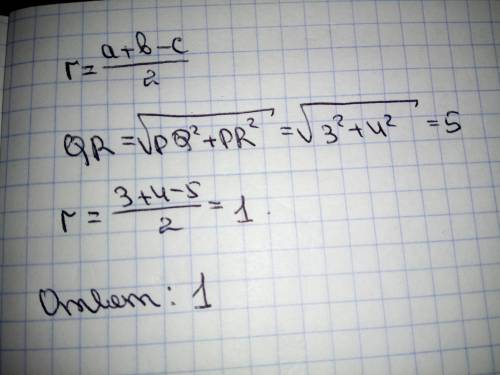 r = (a+b-c)/2
QR = √(PQ²+PR²) = √(3²+4²) = 5
r = (3+4-5)/2 = 1.
Ответ: 1